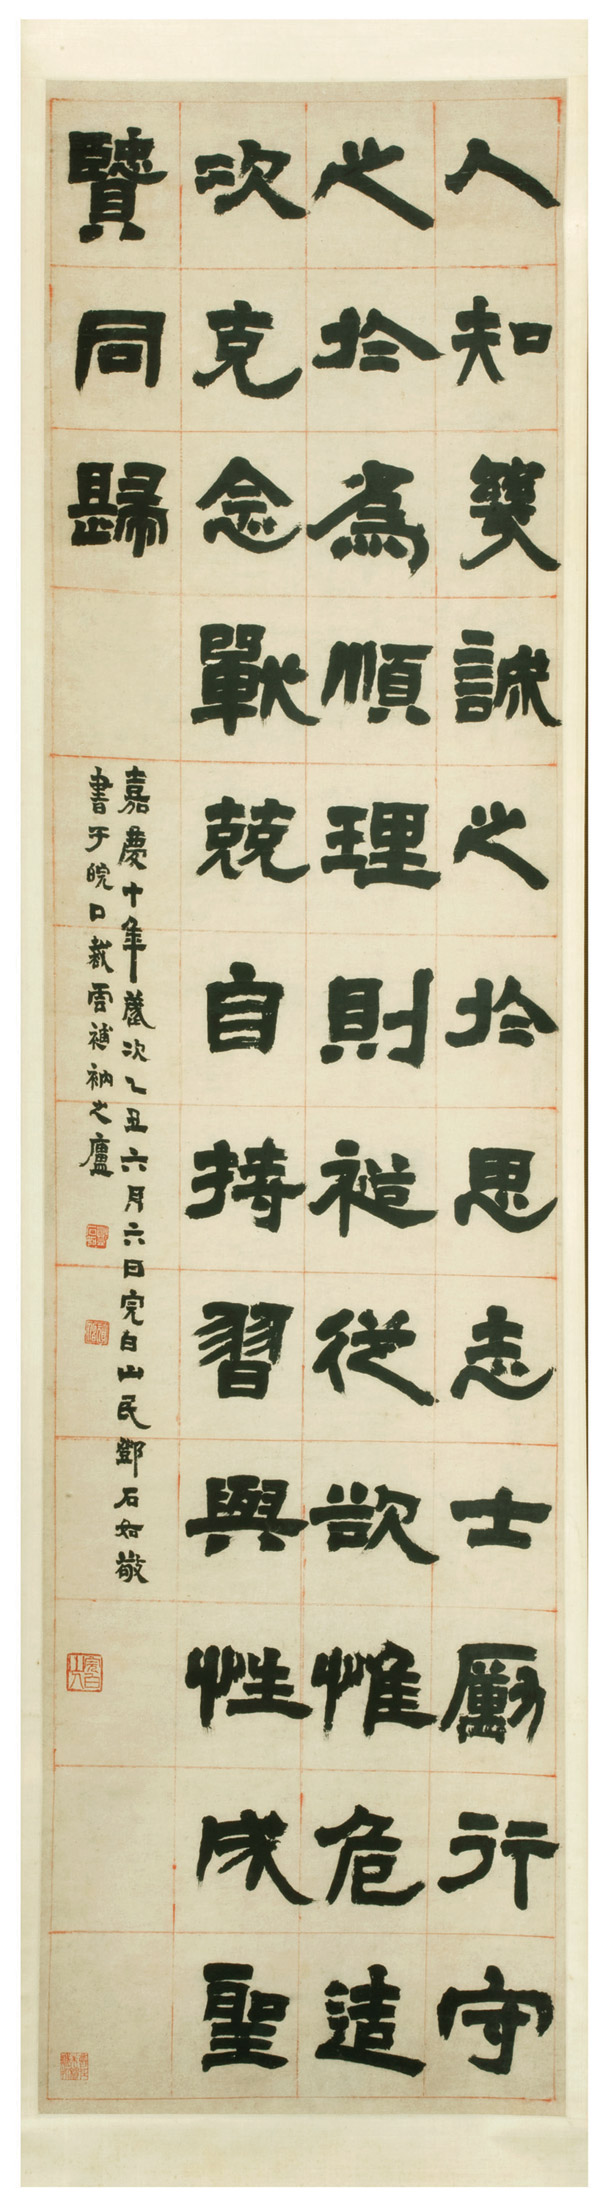 人知幾誠之於思志士厲行守
之於為順理則裕從欲惟危造
次克念戰兢自持習與性成聖
賢同歸
嘉慶十年歲次乙丑六月六日完白山民鄧石如敬
書于皖口裁雲補衲之廬
完白山人